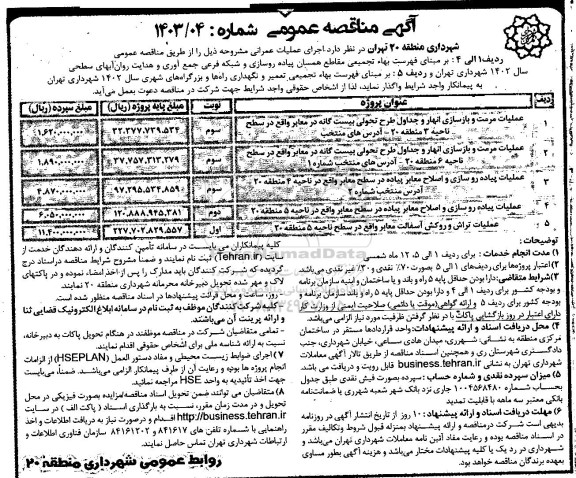 آگهی مناقصه عمومی شماره: ۱۴۰۳/۰۴
شهرداری منطقه ۲۰ تهران در نظر دارد اجرای عملیات عمرانی مشروحه ذیل را از طریق مناقصه عمومی
ردیف ۱ الی ۴ : بر مبنای فهرست بهاء تجمیعی مقاطع همسان پیاده روسازی و شبکه فرعی جمع آوری و هدایت روان‌آبهای سطحی
سال ۱۴۰۲ شهرداری تهران و ردیف ۵ : بر مبنای فهرست بهاء تجمیعی تعمیر و نگهداری راه‌ها و بزرگراه‌های شهری سال ۱۴۰۲ شهرداری تهران
به پیمانکار واجد شرایط واگذار نماید، لذا از اشخاص حقوقی واجد شرایط جهت شرکت در مناقصه دعوت بعمل می آید.
ردیف عنوان پروژه نوبت مبلغ پایه پروژه (ریال) مبلغ سپرده (ریال)
۱ عملیات مرمت و بازسازی انهار و جداول طرح تحولی بیست گانه در معابر واقع در سطح ناحیه ۳ منطقه ۲۰ - آدرس های منتخب سوم ۳۲.۳۷۷.۷۲۹.۵۳۴ ۱.۶۲۰.۰۰۰.۰۰۰
۲ عملیات مرمت و بازسازی انهار و جداول طرح تحولی بیست گانه در معابر واقع در سطح ناحیه ۶ منطقه ۲۰ - آدرس های منتخب شماره ۱ سوم ۳۷.۷۵۷.۳۱۳.۲۷۹ ۱.۸۹۰.۰۰۰.۰۰۰
۳ عملیات پیاده رو سازی و اصلاح معابر پیاده در سطح معابر واقع در ناحیه ۴ منطقه ۲۰ آدرس منتخب شماره ۲ سوم ۹۷.۲۹۵.۵۳۴.۸۵۹ ۴.۸۷۰.۰۰۰.۰۰۰
۴ عملیات پیاده رو سازی و اصلاح معابر پیاده در سطح معابر واقع در ناحیه ۵ منطقه ۲۰ دوم ۱۲۰.۸۸۸.۹۴۵.۳۸۱ ۶.۰۵۰.۰۰۰.۰۰۰
۵ عملیات تراش و روکش آسفالت معابر واقع در سطح ناحیه ۵ منطقه ۲۰ اول ۲۲۷.۷۰۲.۸۲۹.۵۵۷ ۱۱.۴۰۰.۰۰۰.۰۰۰
توضیحات :
۱) مدت انجام خدمات : برای ردیف ۱ الی ۵، ۱۲ ماه شمسی
۲) اعتبار پروژه‌ها برای ردیف‌های ۱ الی ۵ بصورت ۷۰٪ نقدی و ۳۰٪ غیر نقدی می‌باشد.
۳) شرایط متقاضی: دارا بودن حداقل پایه ۵ راه و باند و یا ساختمان و ابنیه سازمان برنامه
و بودجه کشور برای ردیف ۱ الی ۴ و دارا بودن حداقل پایه ۵ راه و باند سازمان برنامه و
بودجه کشور برای ردیف ۵ و ارائه گواهی (موقت یا دائمی) صلاحیت ایمنی از وزارت کار
دارای اعتبار در روز بازگشایی پاکات با در نظر گرفتن ظرفیت مورد نیاز الزامی می‌باشد.
۴) محل دریافت اسناد و ارائه پیشنهادات: واحد قراردادها مستقر در ساختمان
مرکزی منطقه به نشانی: شهرری، میدان هادی ساعی، خیابان شهرداری، جنب
دادگستری شهرستان ری و همچنین اسناد مناقصه از طریق تالار آگهی معاملات
شهرداری تهران به نشانی business.tehran.ir قابل رویت و دریافت می باشد.
۵) میزان سپرده نقدی و شماره حساب : سپرده بصورت فیش نقدی طبق جدول
بحساب شماره ۱۰۰۴۵۶۸۴۸۰ جاری نزد بانک شهر شعبه شهرری یا ضمانت‌نامه
بانکی معتبر سه ماهه با قابلیت تمدید
۶) مهلت دریافت اسناد و ارائه پیشنهاد : ۱۰ روز از تاریخ انتشار آگهی در روزنامه
بدیهی است شرکت درمناقصه و ارائه پیشنهاد بمنزله قبول شروط وتکالیف مقرر
در اسناد مناقصه بوده و رعایت مفاد آئین نامه معاملات شهرداری تهران می‌باشد و
شهرداری در رد یک یا کلیه پیشنهادات مختار می‌باشد و هزینه آگهی بطور مساوی
بعهده برندگان مناقصه خواهد بود.
کلیه پیمانکاران می بایست در سامانه تأمین کنندگان و ارائه دهندگان خدمت از
سایت (Tehran.ir) ثبت نام نمایند و ضمنا مشروح شرایط مناقصه در اسناد درج
گردیده که شرکت کنندگان باید مدارک را پس از اخذ امضاء نموده و در پاکتهای
لاک و مهر شده تحویل دبیرخانه محرمانه شهرداری منطقه ۲۰ نمایند.
روز، ساعت و محل قرائت پیشنهادها در اسناد مناقصه منظور شده است.
کلیه شرکت کنندگان موظف به ثبت نام در سامانه ابلاغ الکترونیک قضایی ثنا
و ارائه پرینت آن می‌باشند.
- تمامی متقاضیان شرکت در مناقصه موظفند در هنگام تحویل پاکات به دبیرخانه،
نسبت به ارائه شناسه ملی برای اشخاص حقوقی اقدام نمایند.
۷) اجرای ضوابط زیست محیطی و مفاد دستور العمل (HSEPLAN) از الزامات
انجام پروژه ها بوده و رعایت آن از طرف پیمانکار الزامی می‌باشد. ضمناً، می‌بایست
جهت اخذ تأئیدیه به واحد HSE مراجعه نمائید.
۸) متقاضیان می توانند ضمن تحویل اسناد مناقصه/مزایده بصورت فیزیکی در محل
تحویل و در مدت زمان مقرر، نسبت به بارگذاری اسناد ( پاکت الف ) در سایت
http://business.tehran.ir اقدام و درصورت نیاز به دریافت اطلاعات و اخذ
راهنمایی با شماره تلفن های ۸۴۱۶۱۷ و ۸۴۱۶۱۲۰۲ سازمان فناوری اطلاعات و
ارتباطات شهرداری تهران تماس حاصل نمایند.
روابط عمومی شهرداری منطقه ۲۰